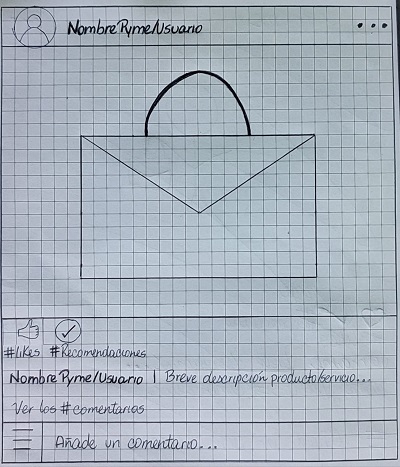 NombrePyme/Usuario
#likes #Recomendaciones
NombrePyme/Usuario | Breve descripción producto/servicio...
Ver los #comentarios
Añade un comentario...